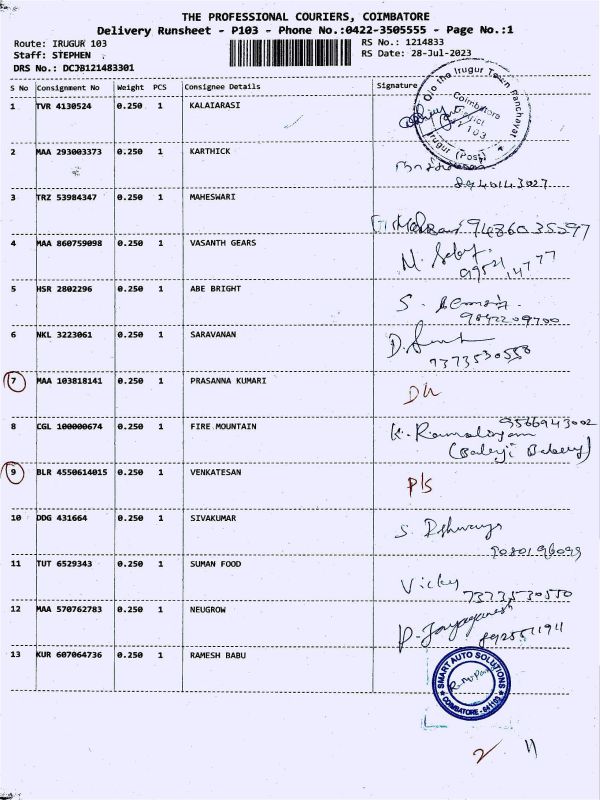 THE PROFESSIONAL COURIERS, COIMBATORE
Delivery Runsheet - P103 - Phone No.:0422-3505555 - Page No.:1
Route: IRUGUR 103
RS No.: 1214833
Staff: STEPHEN
RS Date: 28-Jul-2023
DRS No.: DCJB121483301
S No Consignment No Weight PCS Consignee Details Signature
O/o the Irugur Town Panchayat
Coimbatore
103
Irugur (Post)
1 TVR 4130524 0.250 1 KALAIARASI
2 MAA 293003373 0.250 1 KARTHICK
8940143027
3 TRZ 53984347 0.250 1 MAHESWARI
9486035397
4 MAA 860759098 0.250 1 VASANTH GEARS
M.
5 HSR 2802296 0.250 1 ABE BRIGHT
S.
9842209700
6 NKL 3223061 0.250 1 SARAVANAN
D.
7373530558
7 MAA 103818141 0.250 1 PRASANNA KUMARI
DL
8 CGL 100000674 0.250 1 FIRE MOUNTAIN
9566943002
K. Ramalingam
(Balaji Bakery)
9 BLR 4550614015 0.250 1 VENKATESAN
P/S
10 DDG 431664 0.250 1 SIVAKUMAR
S.
11 TUT 6529343 0.250 1 SUMAN FOOD
Vicky
7373530550
12 MAA 570762783 0.250 1 NEUGROW
P. Jayaganesh
13 KUR 607064736 0.250 1 RAMESH BABU
SMART AUTO SOLUTIONS
COIMBATORE - 641103
2 11